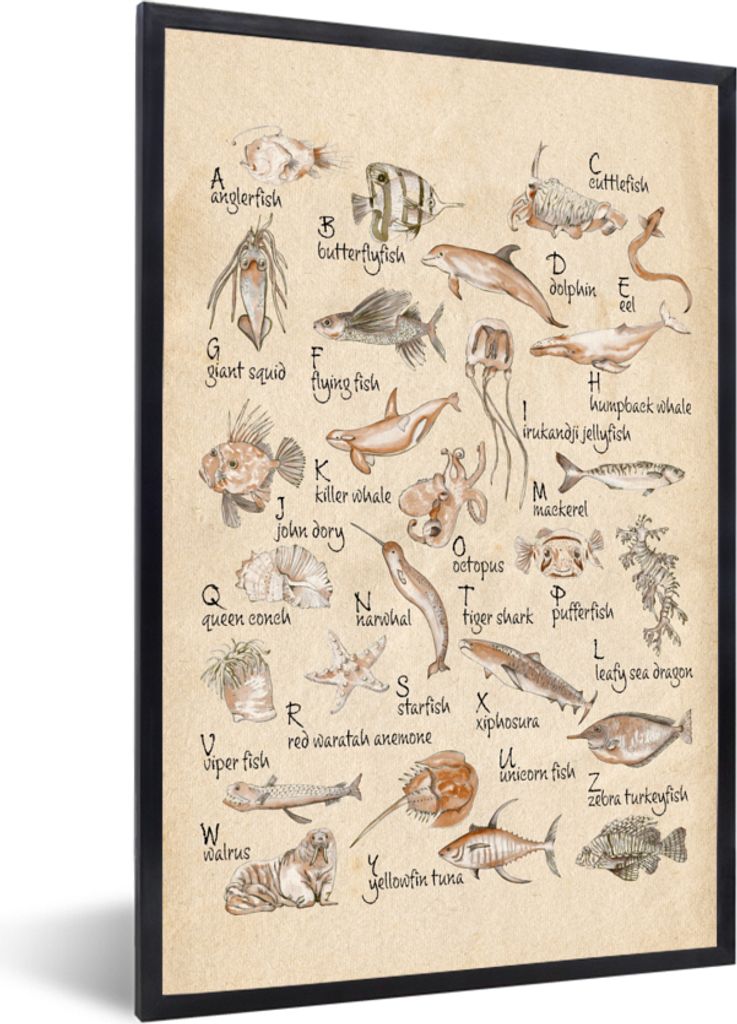 A
anglerfish
B
butterflyfish
C
cuttlefish
D
dolphin
E
eel
G
giant squid
F
flying fish
H
humpback whale
I
irukandji jellyfish
K
killer whale
M
mackerel
J
john dory
O
octopus
Q
queen conch
N
narwhal
T
tiger shark
P
pufferfish
L
leafy sea dragon
S
starfish
X
xiphosura
R
red waratah anemone
V
viper fish
U
unicorn fish
Z
zebra turkeyfish
W
walrus
Y
yellowfin tuna